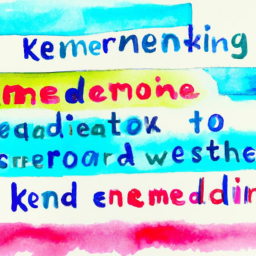 kemernenking
medemoine
eqadieatox to
sreroard westhe
kend enemeddin